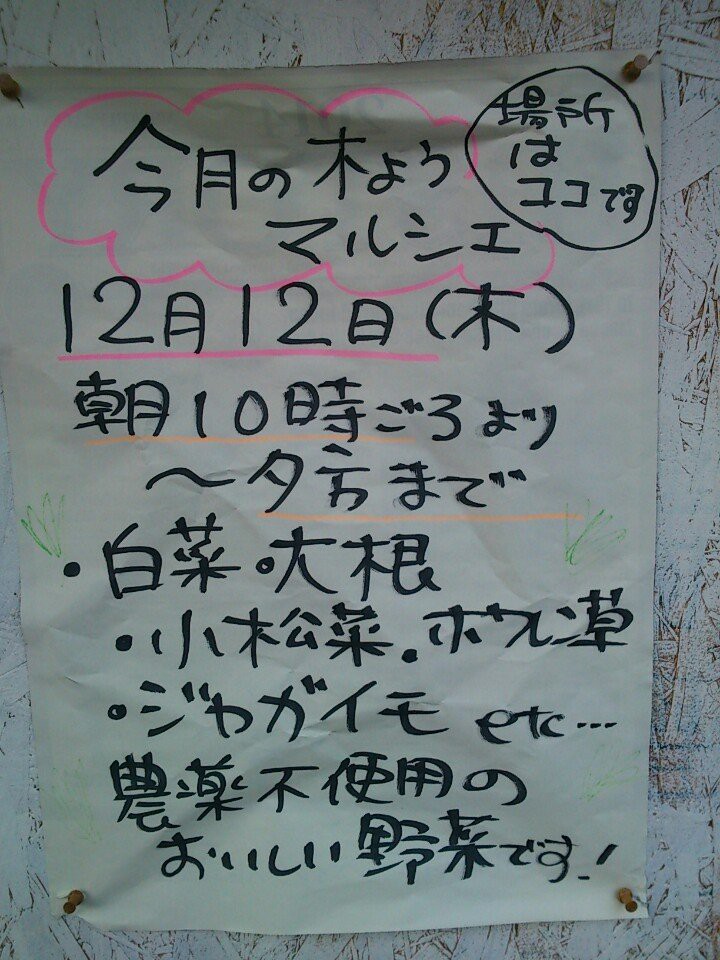 今月の木よう
マルシェ
場所
は
ココです
12月12日(木)
朝10時ごろより
〜夕方まで
・白菜・大根
・小松菜・ホウレン草
・ジャガイモ etc…
農薬不使用の
おいしい野菜です!